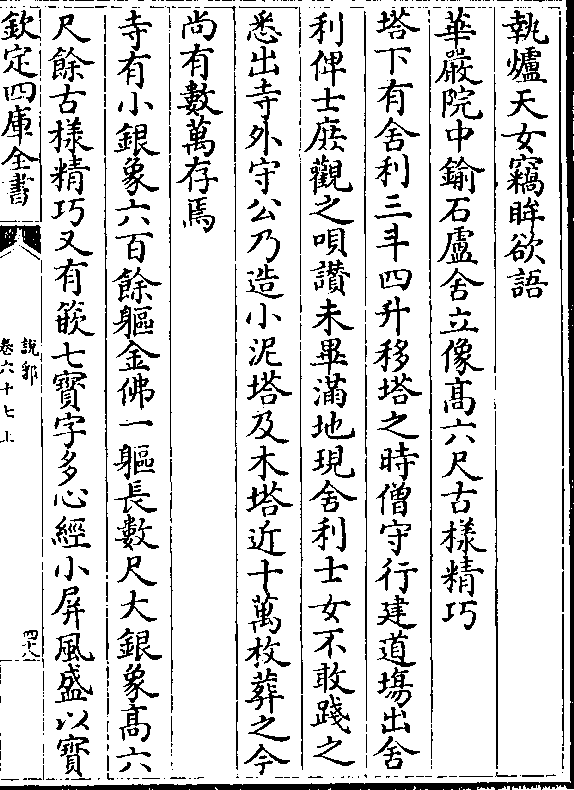 執爐天女竊眸欲語
華嚴院中鍮石盧舍立像髙六尺古様精巧
塔下有舍利三斗四升移塔之時僧守行建道塲出舍
利俾士庶觀之唄讃未畢滿地現舍利士女不敢踐之
悉出寺外守公乃造小泥塔及木塔近十萬枚葬之今
尚有數萬存焉
寺有小銀象六百餘軀金佛一軀長數尺大銀象髙六
尺餘古樣精巧又有嵌七寶字多心經小屏風盛以寶
欽定四庫全書
說郛
卷六十七上
四十八